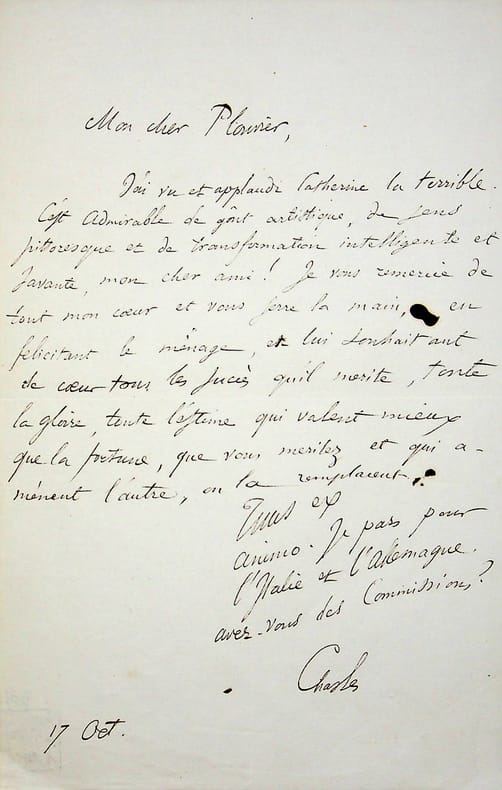 Mon cher Plouvier,
J'ai vu et applaudi Catherine la terrible.
C'est admirable de goût artistique, de sens
pittoresque et de transformation intelligente et
savante, mon cher ami! Je vous remercie de
tout mon cœur et vous serre la main, en
félicitant le ménage, et lui souhaitant
de cœur tous les succès qu'il merite, toute
la gloire, toute l'estime qui valent mieux
que la fortune, que vous meritez et qui a-
mènent l'autre, ou la remplacent.
Tuus ex
animo. Je pars pour
l'Italie et l'allemagne.
avez-vous des Commissions?
Charles
17 Oct.